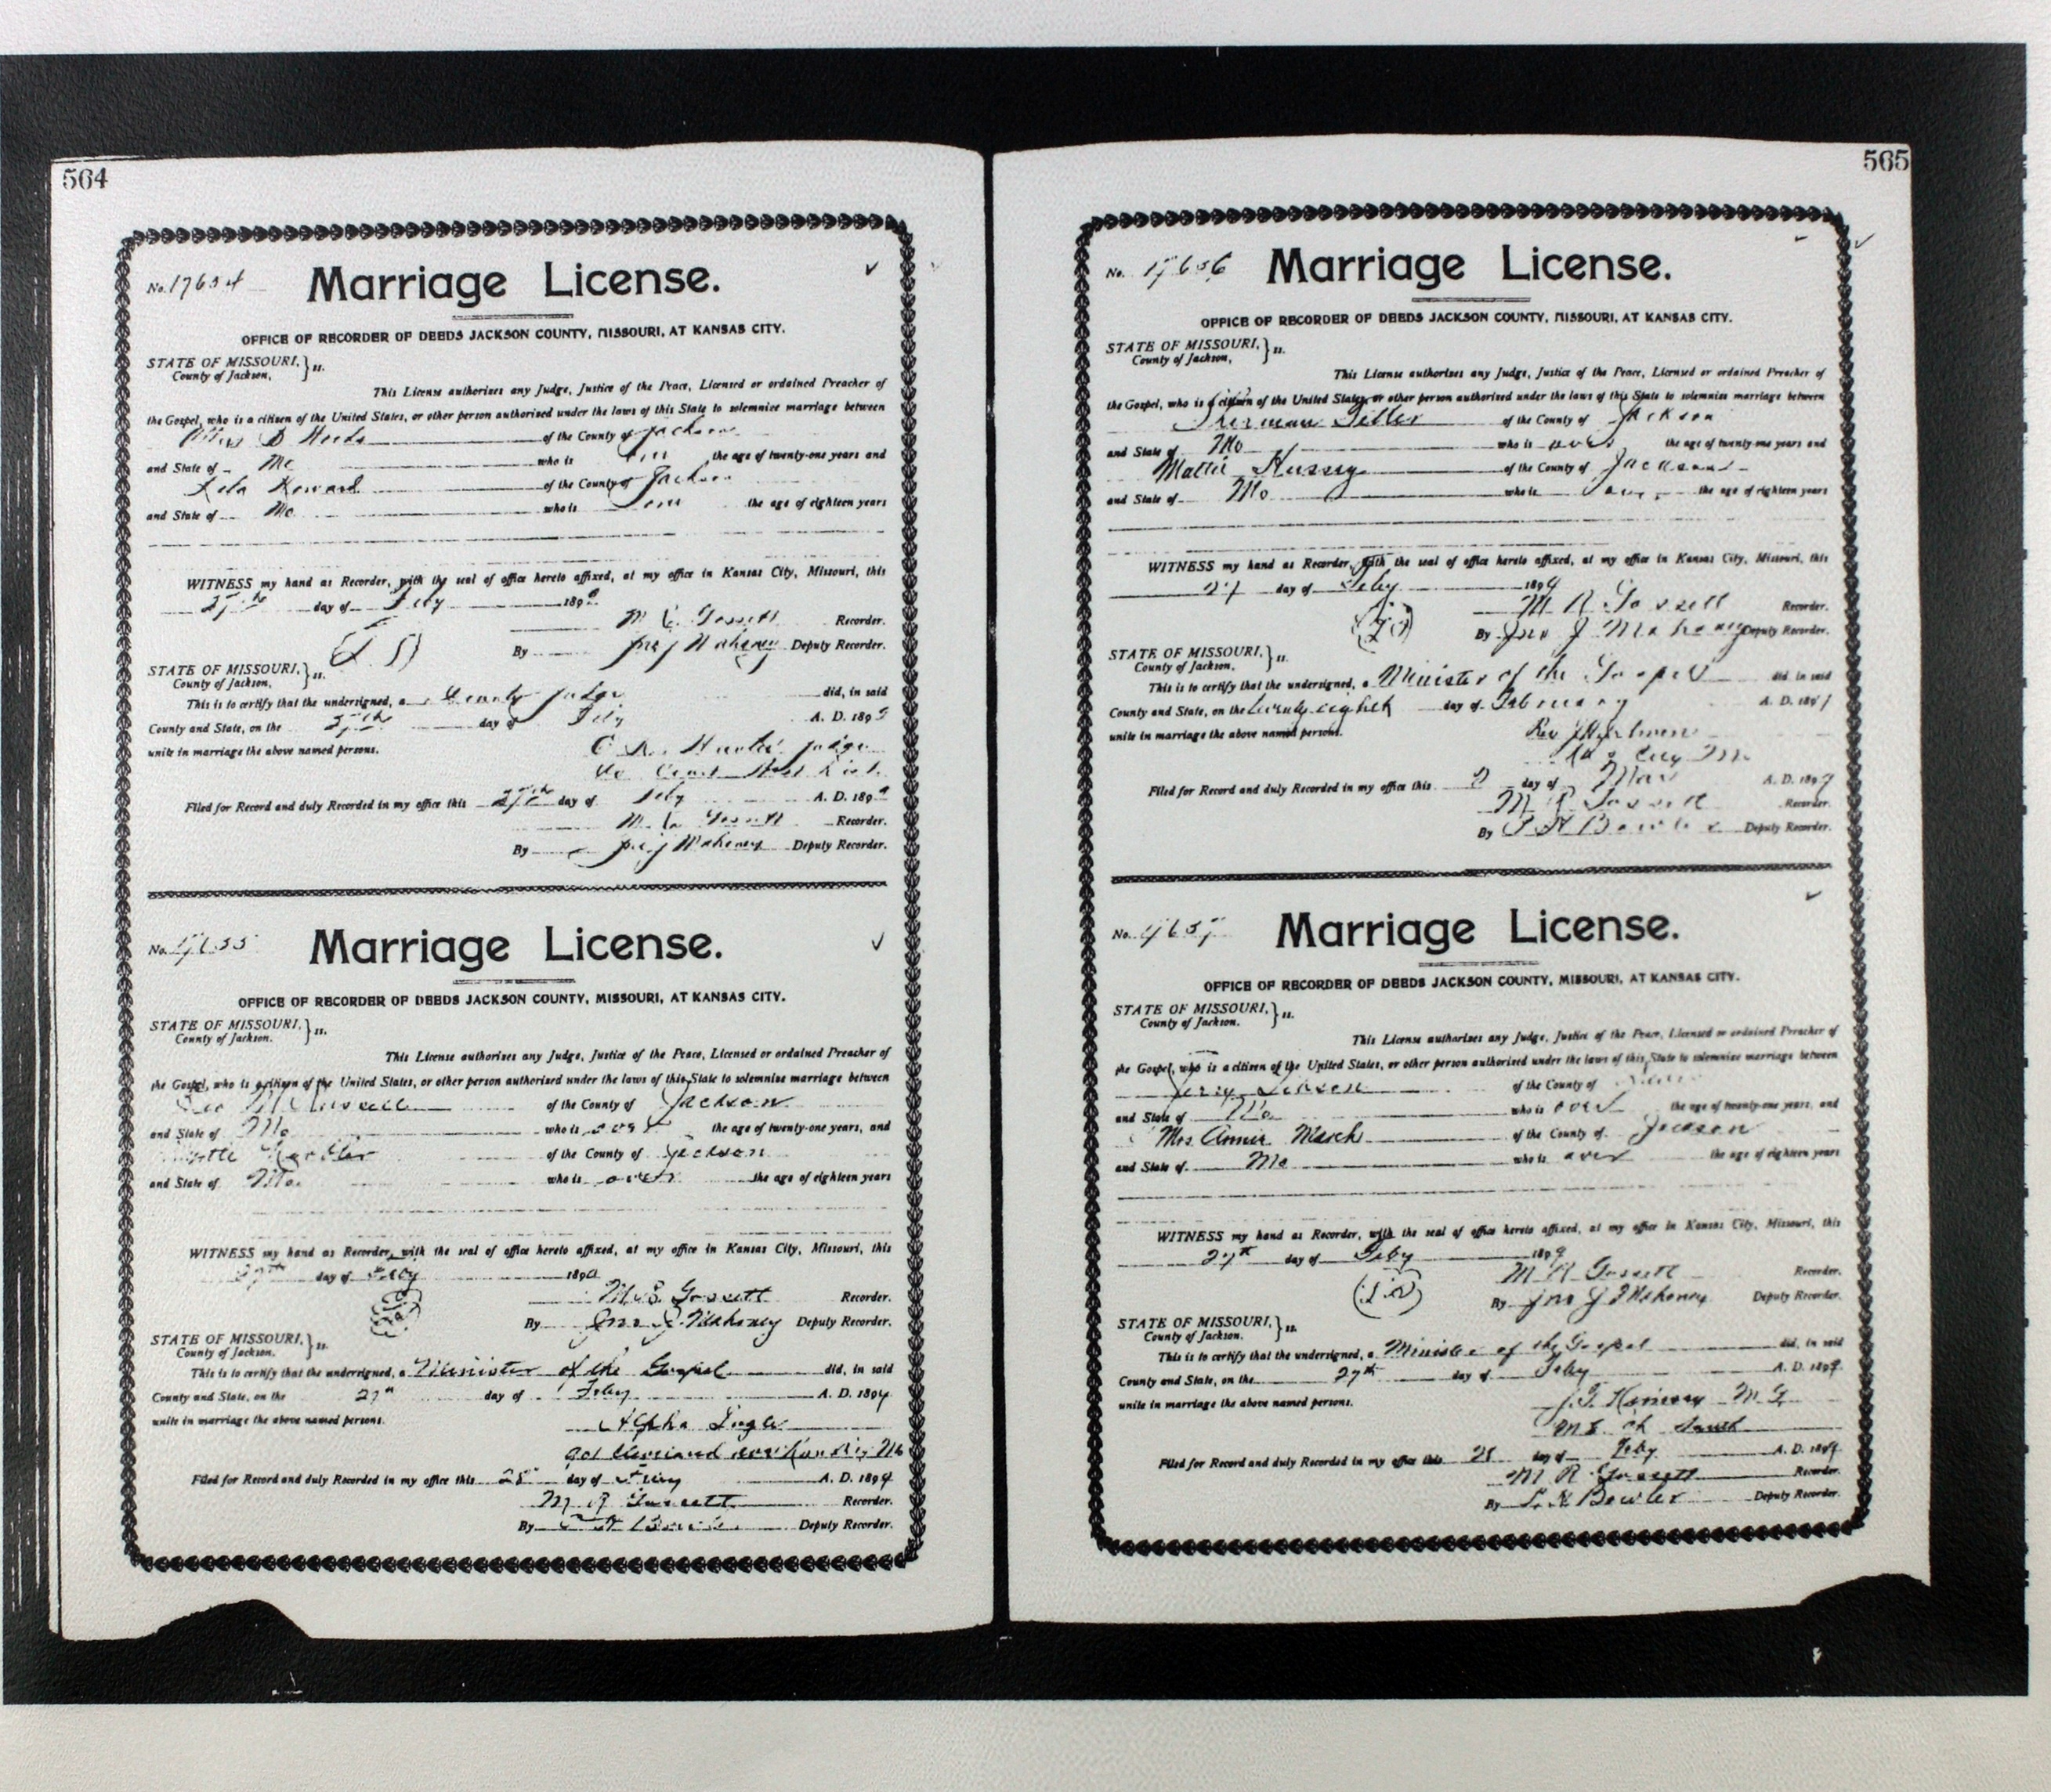 564
No. 17654 Marriage License.
OFFICE OF RECORDER OF DEEDS JACKSON COUNTY, MISSOURI, AT KANSAS CITY.
STATE OF MISSOURI,
County of Jackson, } ss.
This License authorizes any Judge, Justice of the Peace, Licensed or ordained Preacher of
the Gospel, who is a citizen of the United States, or other person authorized under the laws of this State to solemnize marriage between
of the County of Jackson
and State of Mo who is over the age of twenty-one years and
Howard of the County of Jackson
and State of Mo who is over the age of eighteen years
WITNESS my hand as Recorder, with the seal of office hereto affixed, at my office in Kansas City, Missouri, this
27th day of Feby 1899
Gossett Recorder.
By Jno J Mahoney Deputy Recorder.
STATE OF MISSOURI,
County of Jackson, } ss.
This is to certify that the undersigned, a County Judge did, in said
County and State, on the 27th day of Feby A. D. 1899
unite in marriage the above named persons.
Judge
Co Court
Filed for Record and duly Recorded in my office this 27th day of Feby A. D. 1899
Gossett Recorder.
By Jno J Mahoney Deputy Recorder.
No. 17655 Marriage License.
OFFICE OF RECORDER OF DEEDS JACKSON COUNTY, MISSOURI, AT KANSAS CITY.
STATE OF MISSOURI,
County of Jackson. } ss.
This License authorizes any Judge, Justice of the Peace, Licensed or ordained Preacher of
the Gospel, who is a citizen of the United States, or other person authorized under the laws of this State to solemnize marriage between
of the County of Jackson
and State of Mo who is over the age of twenty-one years, and
of the County of Jackson
and State of Mo. who is over the age of eighteen years
WITNESS my hand as Recorder, with the seal of office hereto affixed, at my office in Kansas City, Missouri, this
27th day of Feby 1899
Gossett Recorder.
By Jno J. Mahoney Deputy Recorder.
STATE OF MISSOURI,
County of Jackson. } ss.
This is to certify that the undersigned, a Minister of the Gospel did, in said
County and State, on the 27th day of Feby A. D. 1899
unite in marriage the above named persons.
Alpha
Mo
Filed for Record and duly Recorded in my office this 28 day of Feby A. D. 1899
M R Gossett Recorder.
By Deputy Recorder.
565
No. 17656 Marriage License.
OFFICE OF RECORDER OF DEEDS JACKSON COUNTY, MISSOURI, AT KANSAS CITY.
STATE OF MISSOURI,
County of Jackson, } ss.
This License authorizes any Judge, Justice of the Peace, Licensed or ordained Preacher of
the Gospel, who is a citizen of the United States, or other person authorized under the laws of this State to solemnize marriage between
of the County of Jackson
and State of Mo who is over the age of twenty-one years and
Mattie Hussey of the County of Jackson
and State of Mo who is over the age of eighteen years
WITNESS my hand as Recorder, with the seal of office hereto affixed, at my office in Kansas City, Missouri, this
27 day of Feby 1899
M R Gossett Recorder.
By Jno J Mahoney Deputy Recorder.
STATE OF MISSOURI,
County of Jackson, } ss.
This is to certify that the undersigned, a Minister of the Gospel did, in said
County and State, on the twenty eighth day of February A. D. 1899
unite in marriage the above named persons.
Rev
City Mo
Filed for Record and duly Recorded in my office this day of Mar A. D. 1899
M R Gossett Recorder.
By Bowler Deputy Recorder.
No. 17657 Marriage License.
OFFICE OF RECORDER OF DEEDS JACKSON COUNTY, MISSOURI, AT KANSAS CITY.
STATE OF MISSOURI,
County of Jackson. } ss.
This License authorizes any Judge, Justice of the Peace, Licensed or ordained Preacher of
the Gospel, who is a citizen of the United States, or other person authorized under the laws of this State to solemnize marriage between
Jerry of the County of
and State of Mo who is over the age of twenty-one years, and
Mrs Annie March of the County of Jackson
and State of Mo who is over the age of eighteen years
WITNESS my hand as Recorder, with the seal of office hereto affixed, at my office in Kansas City, Missouri, this
27th day of Feby 1899
M R Gossett Recorder.
By Jno J Mahoney Deputy Recorder.
STATE OF MISSOURI,
County of Jackson. } ss.
This is to certify that the undersigned, a Minister of the Gospel did, in said
County and State, on the 27th day of Feby A. D. 1899
unite in marriage the above named persons.
M. G.
M E Ch South
Filed for Record and duly Recorded in my office this 28 day of Feby A. D. 1899
M R Gossett Recorder.
By Bowler Deputy Recorder.